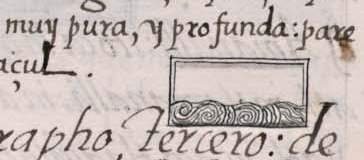 muy pura, y profunda: pare
açul.
rapho, Tercero: de